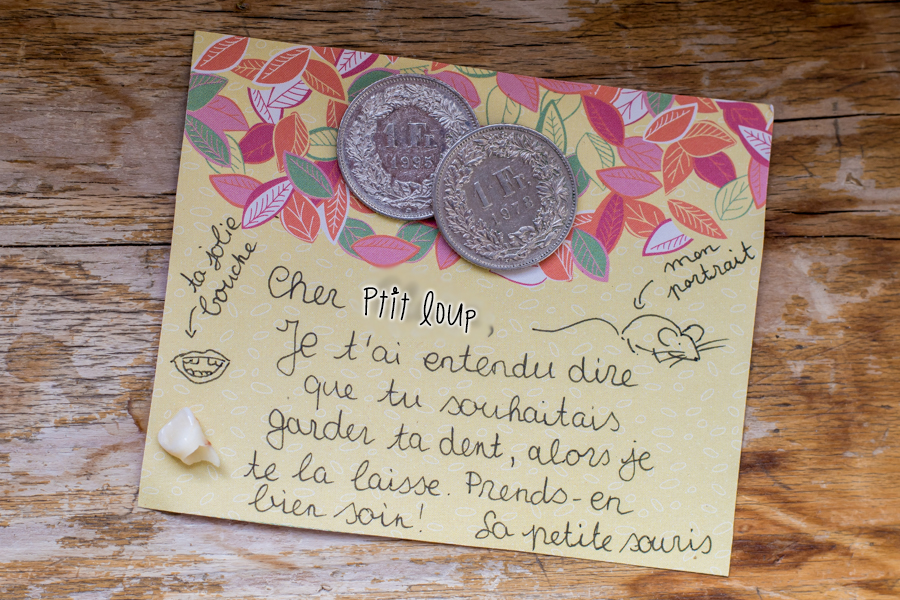 1 Fr.
1 Fr.
1978
ta jolie
bouche
mon
portrait
Cher Ptit loup,
Je t'ai entendu dire
que tu souhaitais
garder ta dent, alors je
te la laisse. Prends-en
bien soin!
La petite souris